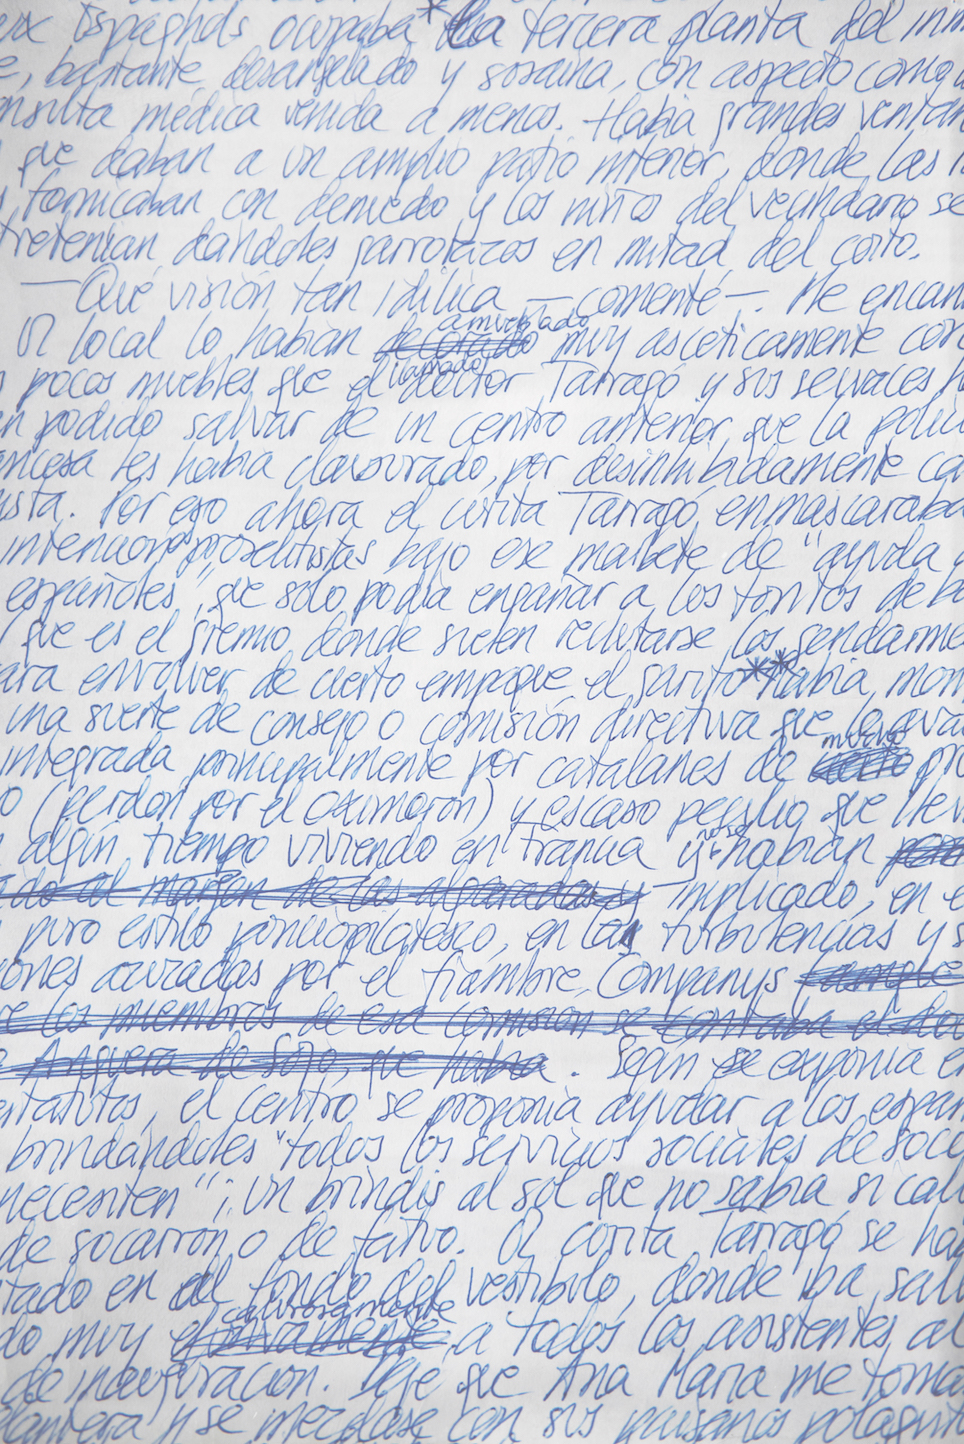 Espagnols ocupaba * la tercera planta del inm
e, bastante desangelado y sosaina, con aspecto como
nsulta médica venida a menos. Había grandes ventan
que daban a un amplio patio interior, donde las
fornicaban con denuedo y los niños del vecindario se
tretenían dándoles garrotazos en mitad del coito.
—Qué visión tan idílica —comenté—. Me encan
El local lo habían amueblado muy ascéticamente con
s pocos muebles que el llamado doctor Tarragó y sus secuaces h
n podido salvar de un centro anterior que la polic
ancesa les había clausurado, por desinhibidamente
ista. Por eso ahora el curita Tarragó enmascaraba
intenciones proselitistas bajo ese marbete de "ayuda
españoles", que sólo podía engañar a los tontos de b
(que es el gremio donde suelen reclutarse los gendarme
ara envolver de cierto empaque el garito ** había mon
una suerte de consejo o comisión directiva que
integrada principalmente por catalanes de mucho
o (perdón por el oxímoron) y escaso peculio que llev
algún tiempo viviendo en Francia y no se habían
implicado, en e
puro estilo principio, en las turbulencias y s
iones azuzadas por el fiambre Companys
. Según se exponía en
estatutos, el centro se proponía ayudar a los españ
brindándoles "todos los servicios sociales de soco
necesiten"; un brindis al sol que no sabía si cali
de socarrón o de fatuo. El corita Tarragó se ha
tado en el fondo del vestíbulo, donde iba salu
do muy calurosamente a todos los asistentes al
de inauguración. Dejé que Ana María me toma
delantera y se mezclase con sus paisanos